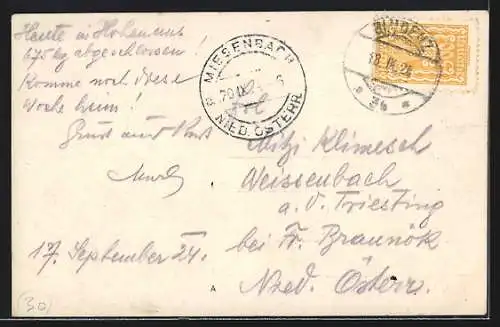 Heute in Hohenems
675 kg abgeschlossen!
Komme noch diese
Woche heim!
Gruß und Kuss
17. September 24.
MIESENBACH
NIED. ÖSTERR.
BLUDENZ
18. IX. 24
* 3b *
Mitzi Klimesch
Weissenbach
a. d. Triesting
bei Fr. Braunök
Nied. Österr.
A
(30)